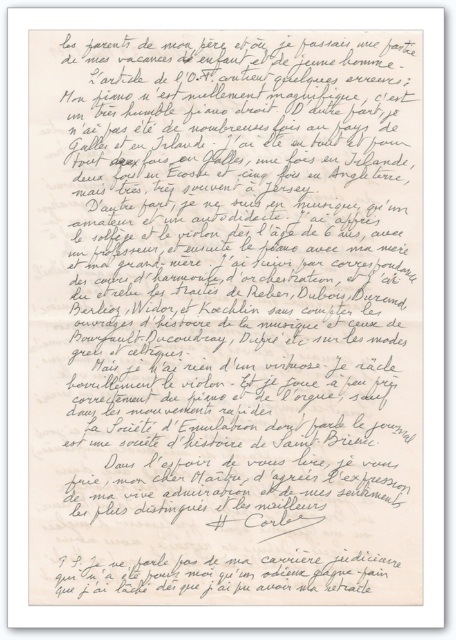 les parents de mon père et où je passais une partie
de mes vacances d'enfant et de jeune homme.
L'article de l'O.F. contient quelques erreurs :
Mon piano n'est nullement magnifique, c'est
un très humble piano droit. D'autre part, je
n'ai pas été de nombreuses fois au pays de
Galles et en Irlande. J'ai été en tout et pour
tout deux fois en Galles, une fois en Irlande,
deux fois en Ecosse et cinq fois en Angleterre,
mais très, très souvent à Jersey.
D'autre part, je ne suis en musique, qu'un
amateur et un autodidacte. J'ai appris
le solfège et le violon dès l'âge de 6 ans, avec
un professeur, et ensuite le piano avec ma mère
et ma grand-mère. J'ai suivi par correspondance
des cours d'harmonie, d'orchestration, et j'ai
lu et relu les traités de Reber, Dubois, Durand
Berlioz, Widor, et Koechlin sans compter les
ouvrages d'histoire de la musique et ceux de
Bourgault-Ducoudray, Dupré etc sur les modes
grecs et celtiques.
Mais je n'ai rien d'un virtuose. Je râcle
horriblement le violon. Et je joue à peu près
correctement du piano et de l'orgue, sauf
dans les mouvements rapides
La Société d'Emulation dont parle le journal
est une société d'histoire de Saint Brieuc.
Dans l'espoir de vous lire, je vous
prie, mon cher Maître, d'agréer l'expression
de ma vive admiration et de mes sentiments
les plus distingués et les meilleurs
H Corbes
P.S. Je ne parle pas de ma carrière judiciaire
qui n'a été pour moi qu'un odieux gagne-pain
que j'ai lâché dès que j'ai pu avoir ma retraite